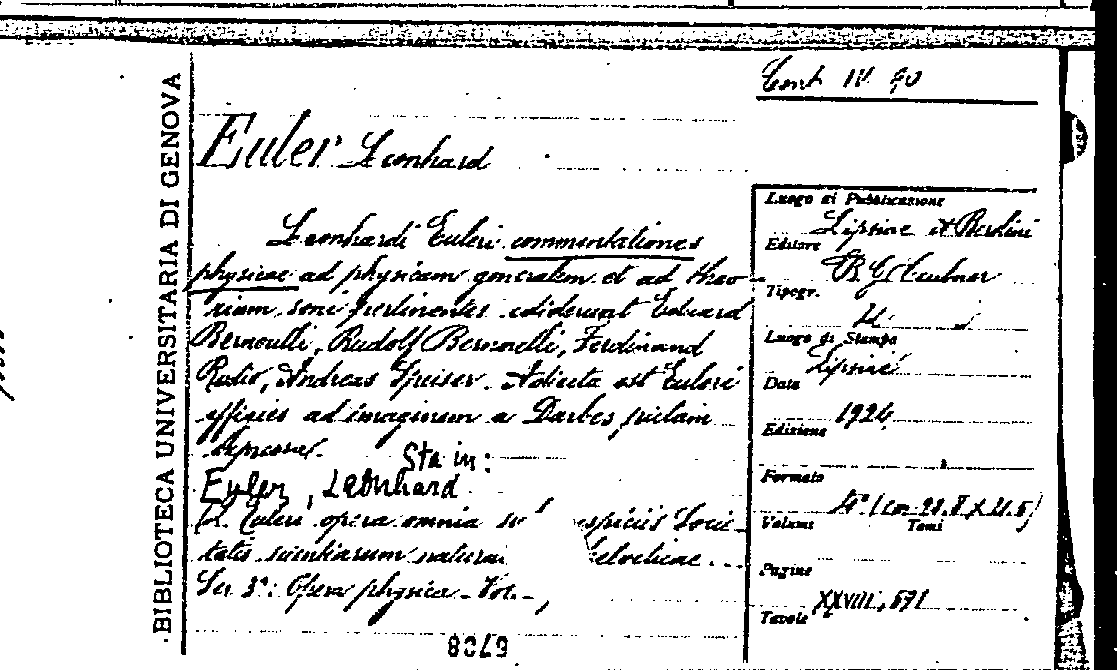 BIBLIOTECA UNIVERSITARIA DI GENOVA
Cont IV 90
Euler Leonhard
Leonhardi Euleri commentationes
physicae ad physicam generalem et ad theo-
riam soni pertinentes ediderunt Eduard
Bernoulli, Rudolf Bernoulli, Ferdinand
Rudio, Andreas Speiser. Adiecta est Euleri
effigies ad imaginem a Darbes pictam
expressa.
Sta in:
Euler, Leonhard
L. Euleri opera omnia su espiciis Socie-
tatis scientiarum natura elveticae...
Ser 3ª: Opera physica - Vol. - ,
8049
Luogo di Pubblicazione
Lipsiae et Berolini
Editore
B. G. Teubner
Tipogr.
Luogo di Stampa
Lipsiae
Data
1926
Edizione
Formato
4° (cm 28.8 X 21.5)
Volume Tomi
Pagine
XXVIII, 591
Tavole